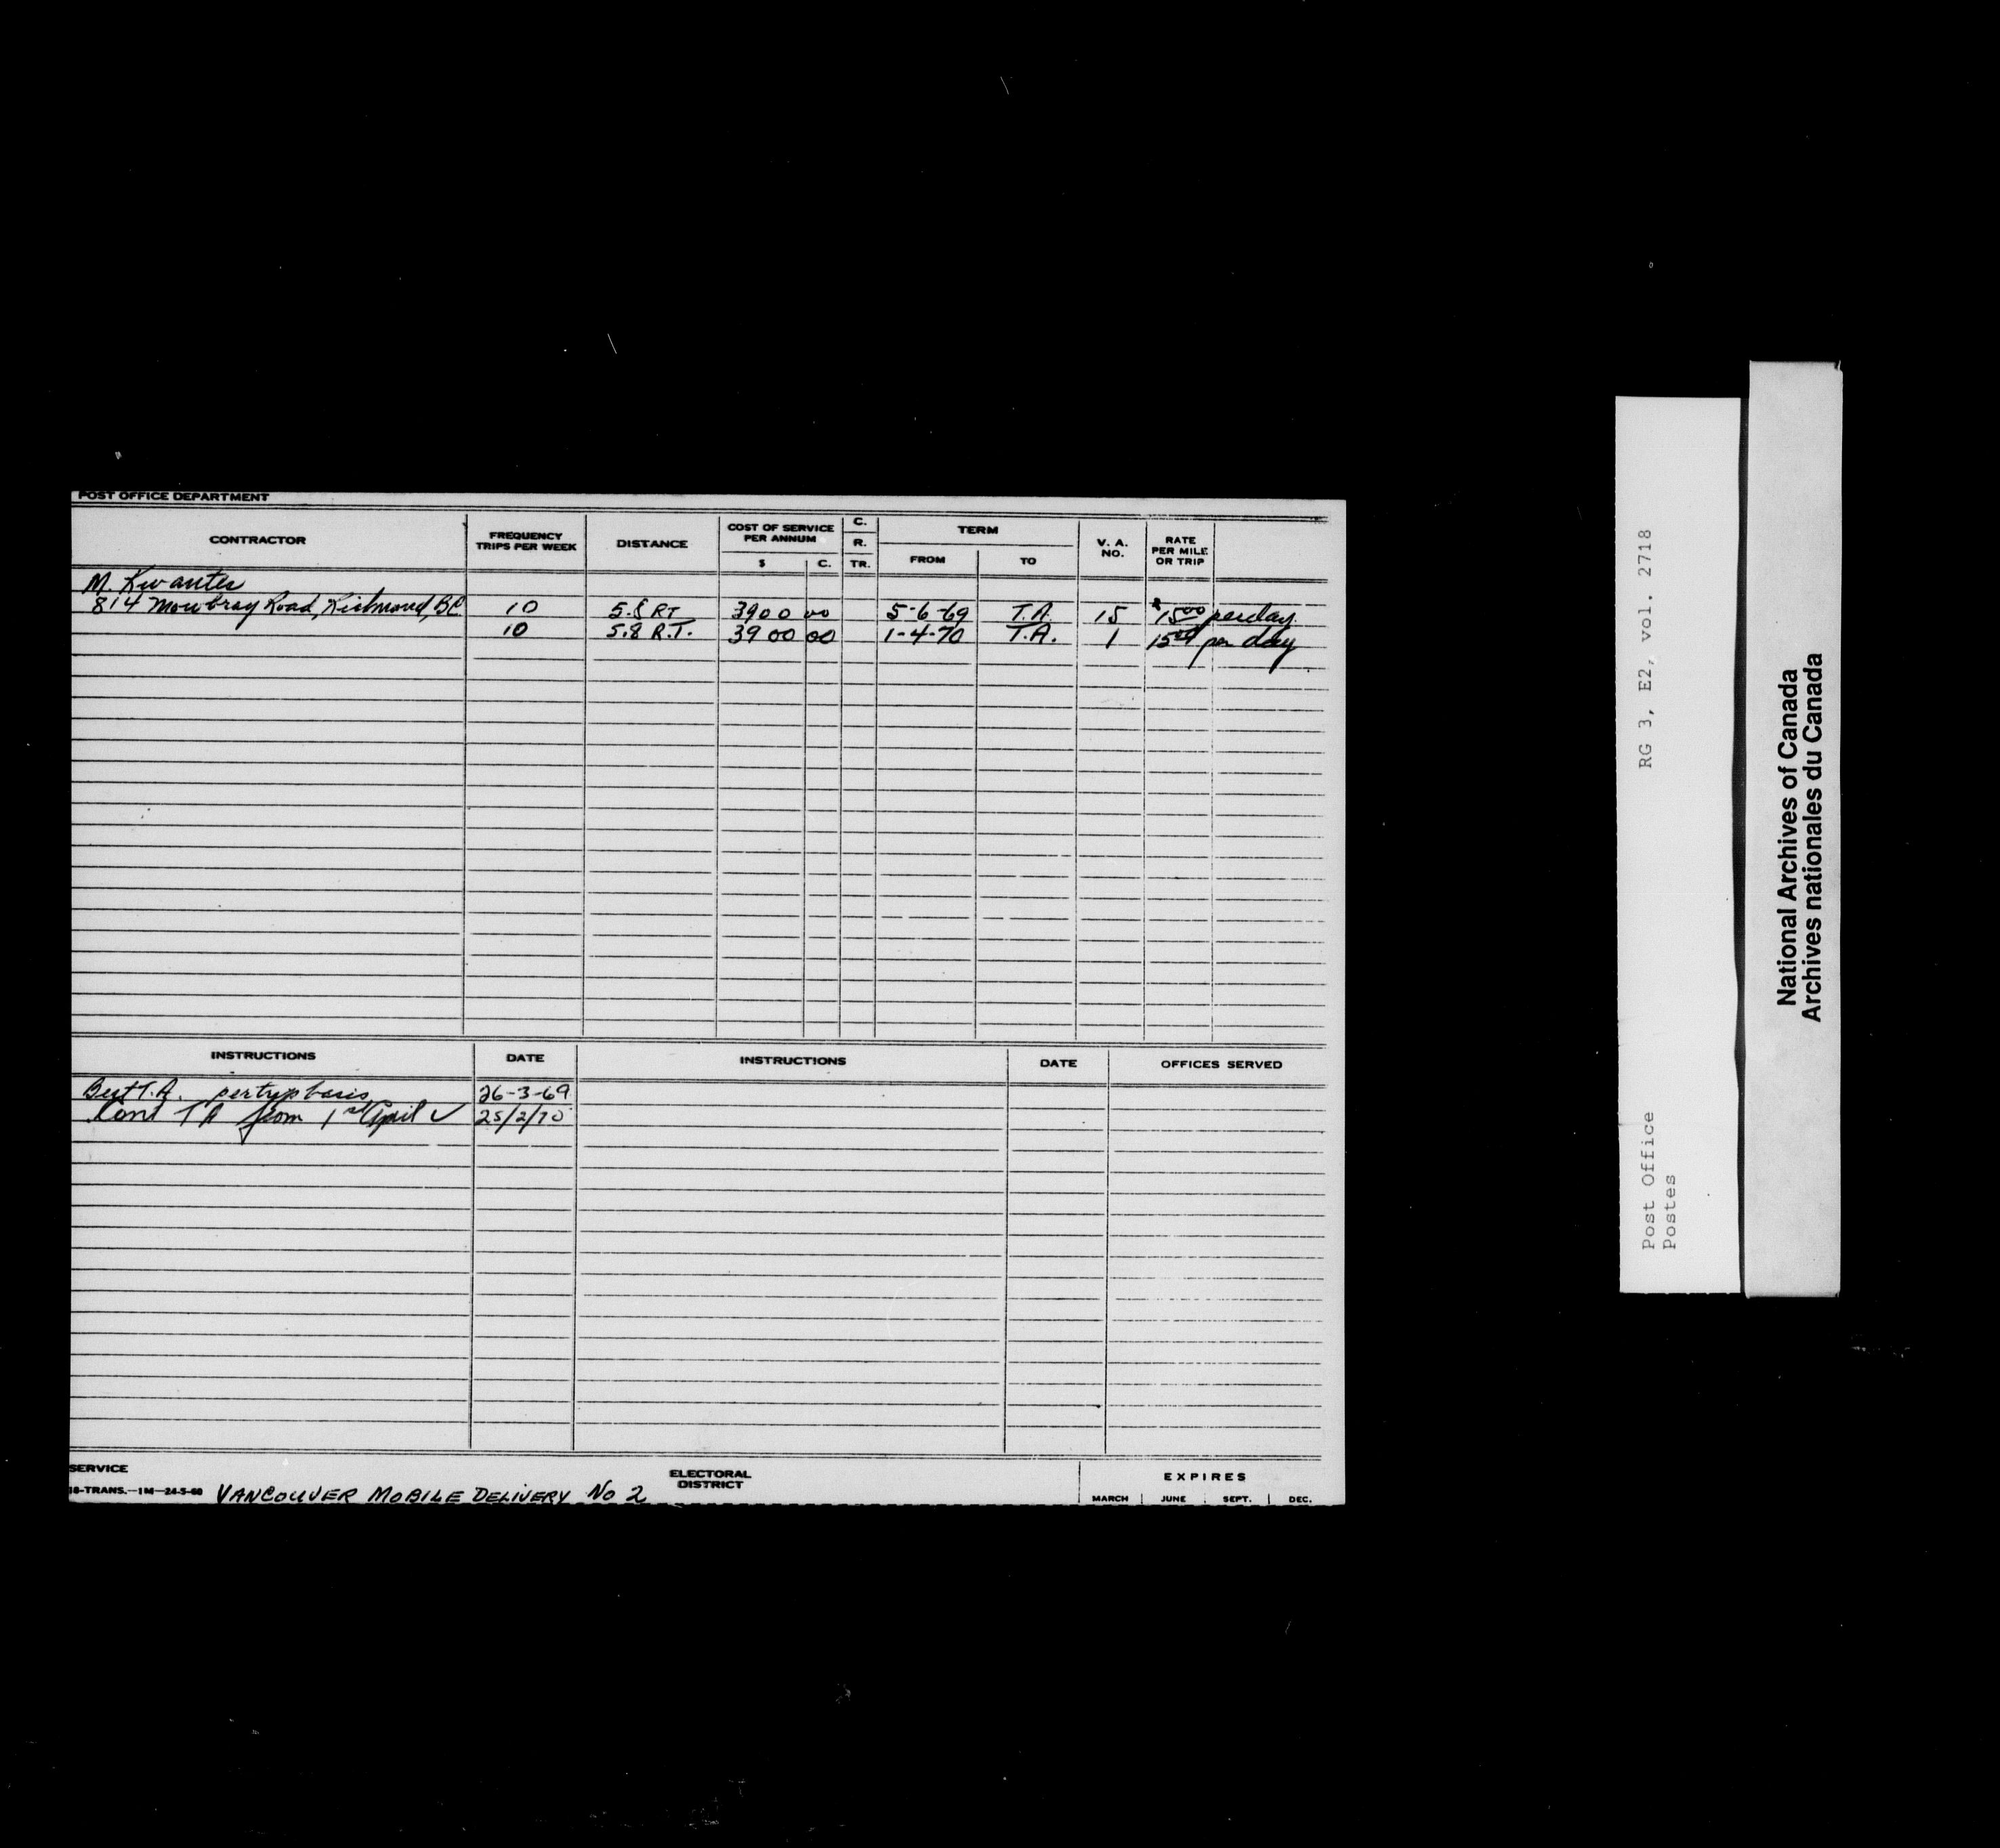 POST OFFICE DEPARTMENT
CONTRACTOR FREQUENCY TRIPS PER WEEK DISTANCE COST OF SERVICE PER ANNUM $ C. C. R. TR. TERM FROM TO V. A. NO. RATE PER MILE OR TRIP
M. Kwantes
814 Mowbray Road, Richmond, BC 10 5.8 RT 3900 00 5-6-69 T.A. 15 $15.00 per day
10 5.8 R.T. 3900 00 1-4-70 T.A. 1 15.00 per day
INSTRUCTIONS DATE INSTRUCTIONS DATE OFFICES SERVED
T.A. per trip basis 26-3-69
Cont T A from 1st April ✓ 25/2/70
SERVICE
18-TRANS.—1M—24-5-60 VANCOUVER MOBILE DELIVERY No 2
ELECTORAL
DISTRICT
EXPIRES
MARCH JUNE SEPT. DEC.
RG 3, E2, vol. 2718
Post Office
Postes
National Archives of Canada
Archives nationales du Canada